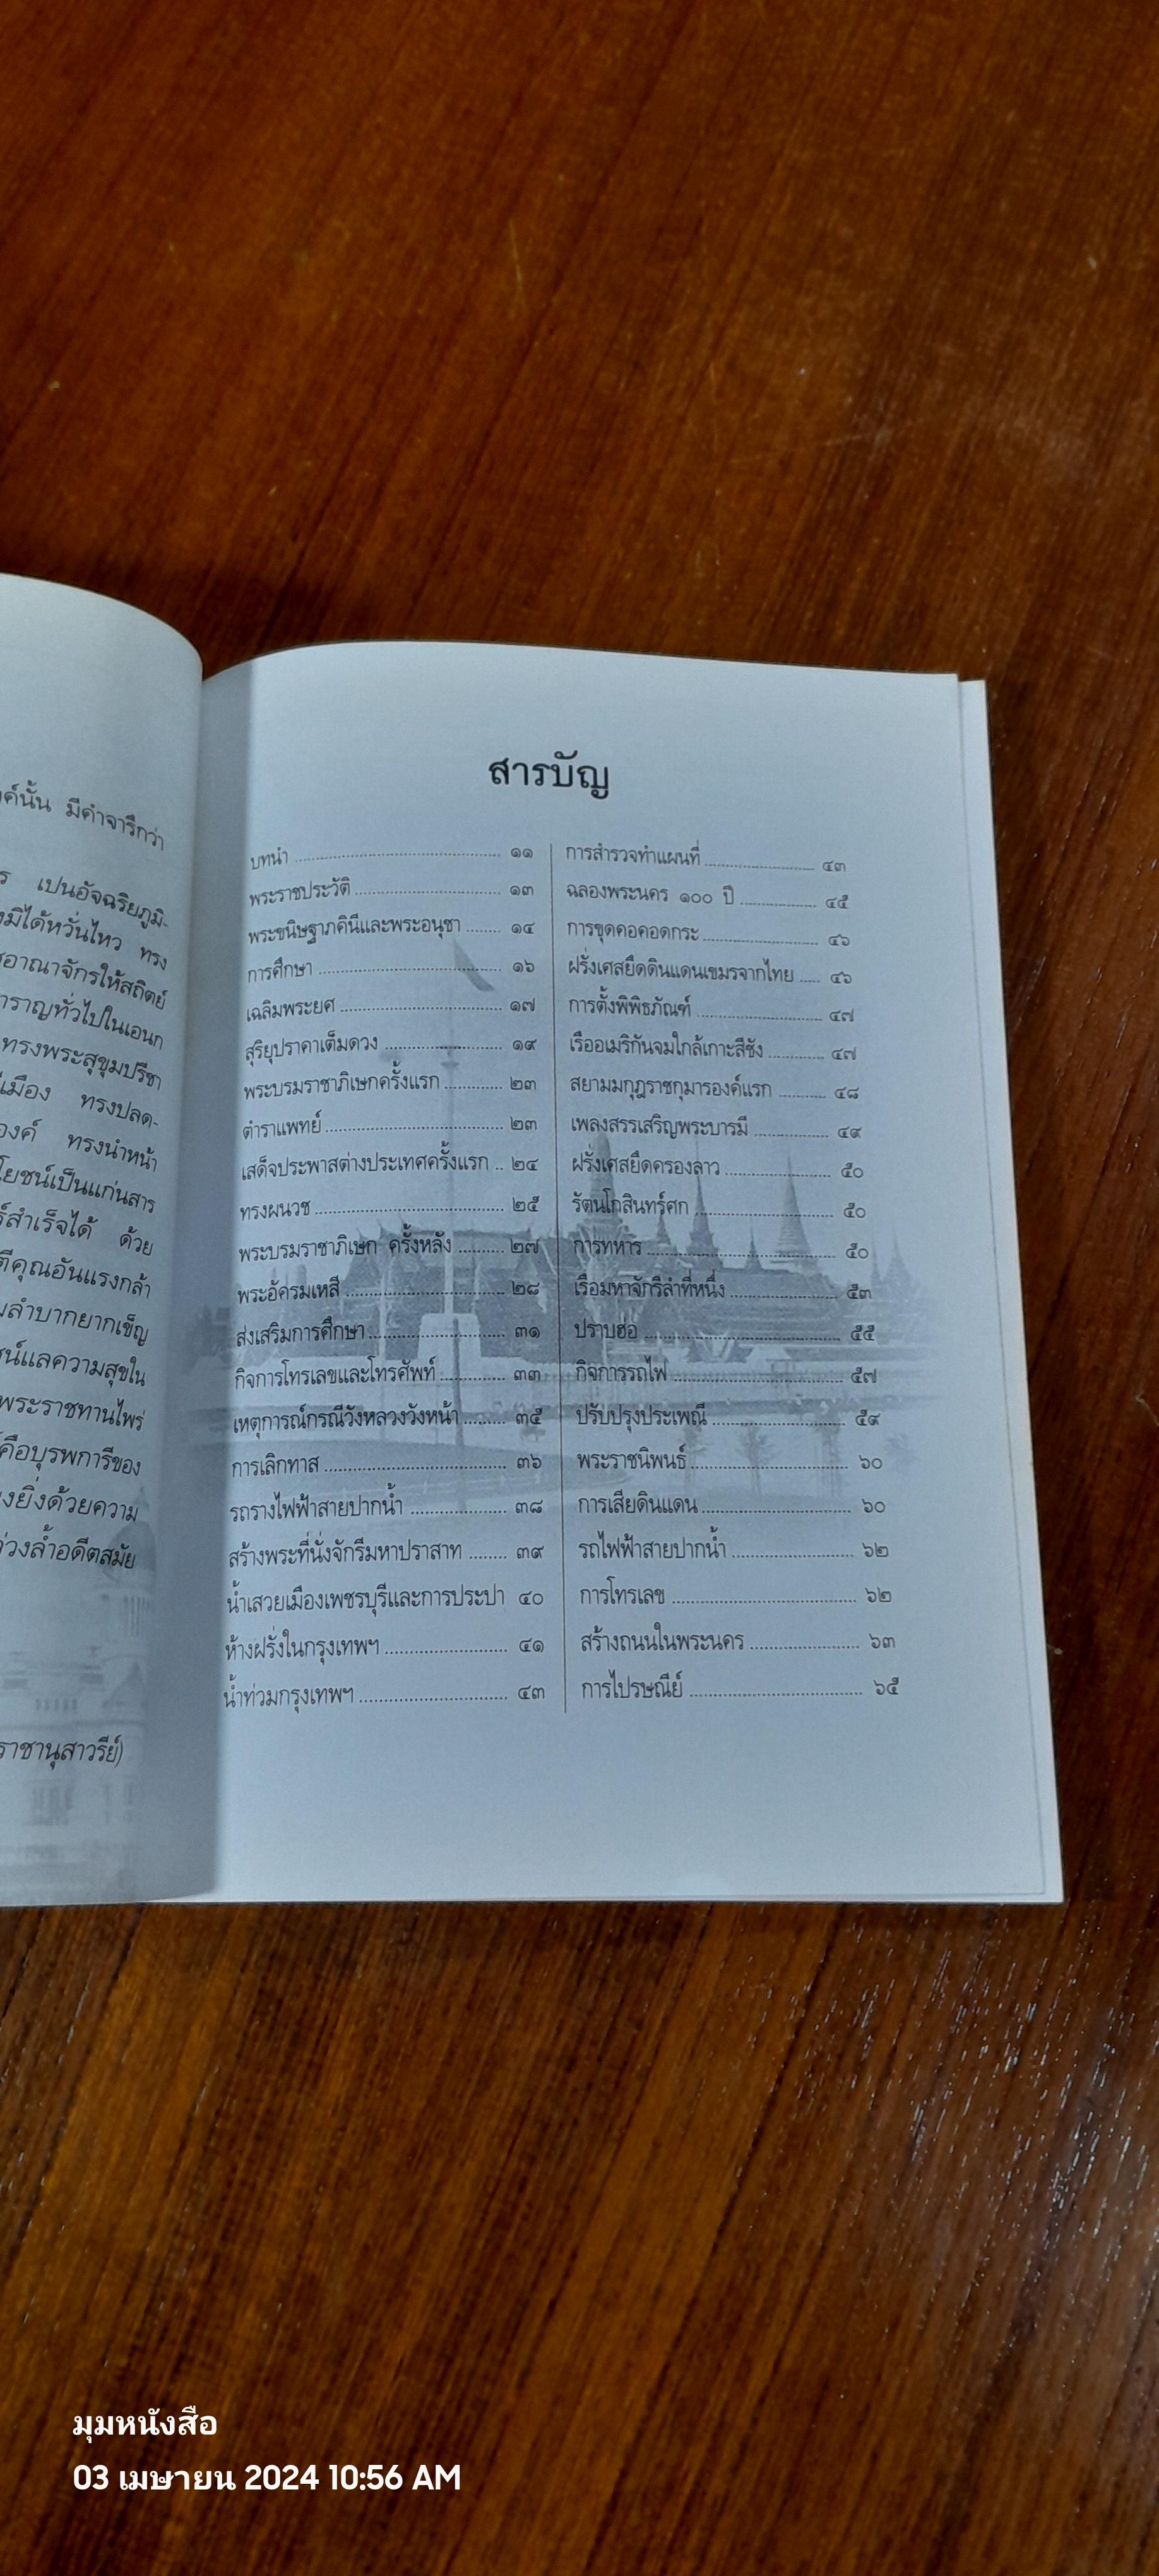 ค์นั้น มีคำจารึกว่า
ร เปนอัจฉริยภูมิ-
มิได้หวั่นไหว ทรง
อาณาจักรให้สถิตย์
ำราญทั่วไปในเอนก
ทรงพระสุขุมปรีชา
เมือง ทรงปลด-
องค์ ทรงนำหน้า
โยชน์เป็นแก่นสาร
์สำเร็จได้ ด้วย
คุณอันแรงกล้า
ลำบากยากเข็ญ
น์แลความสุขใน
พระราชทานไพร่
คือบุรพการีของ
งยิ่งด้วยความ
่วงล้ำอดีตสมัย
ราชานุสาวรีย์)
สารบัญ
บทนำ ๑๑
พระราชประวัติ ๑๓
พระขนิษฐาภคินีและพระอนุชา ๑๔
การศึกษา ๑๖
เฉลิมพระยศ ๑๗
สุริยุปราคาเต็มดวง ๑๙
พระบรมราชาภิเษกครั้งแรก ๒๓
ตำราแพทย์ ๒๓
เสด็จประพาสต่างประเทศครั้งแรก .. ๒๔
ทรงผนวช ๒๕
พระบรมราชาภิเษก ครั้งหลัง ๒๗
พระอัครมเหสี ๒๘
ส่งเสริมการศึกษา ๓๑
กิจการโทรเลขและโทรศัพท์ ๓๓
เหตุการณ์กรณีวังหลวงวังหน้า ๓๕
การเลิกทาส ๓๖
รถรางไฟฟ้าสายปากน้ำ ๓๘
สร้างพระที่นั่งจักรีมหาปราสาท ๓๙
น้ำเสวยเมืองเพชรบุรีและการประปา ๔๐
ห้างฝรั่งในกรุงเทพฯ ๔๑
น้ำท่วมกรุงเทพฯ ๔๓
การสำรวจทำแผนที่ ๔๓
ฉลองพระนคร ๑๐๐ ปี ๔๕
การขุดคอคอดกระ ๔๖
ฝรั่งเศสยึดดินแดนเขมรจากไทย ๔๖
การตั้งพิพิธภัณฑ์ ๔๗
เรืออเมริกันจมใกล้เกาะสีชัง ๔๗
สยามมกุฎราชกุมารองค์แรก ๔๘
เพลงสรรเสริญพระบารมี ๔๙
ฝรั่งเศสยึดครองลาว ๕๐
รัตนโกสินทร์ศก ๕๐
การทหาร ๕๐
เรือมหาจักรีลำที่หนึ่ง ๕๓
ปราบฮ่อ ๕๕
กิจการรถไฟ ๕๗
ปรับปรุงประเพณี ๕๙
พระราชนิพนธ์ ๖๐
การเสียดินแดน ๖๐
รถไฟฟ้าสายปากน้ำ ๖๒
การโทรเลข ๖๒
สร้างถนนในพระนคร ๖๓
การไปรษณีย์ ๖๕
มุมหนังสือ
03 เมษายน 2024 10:56 AM